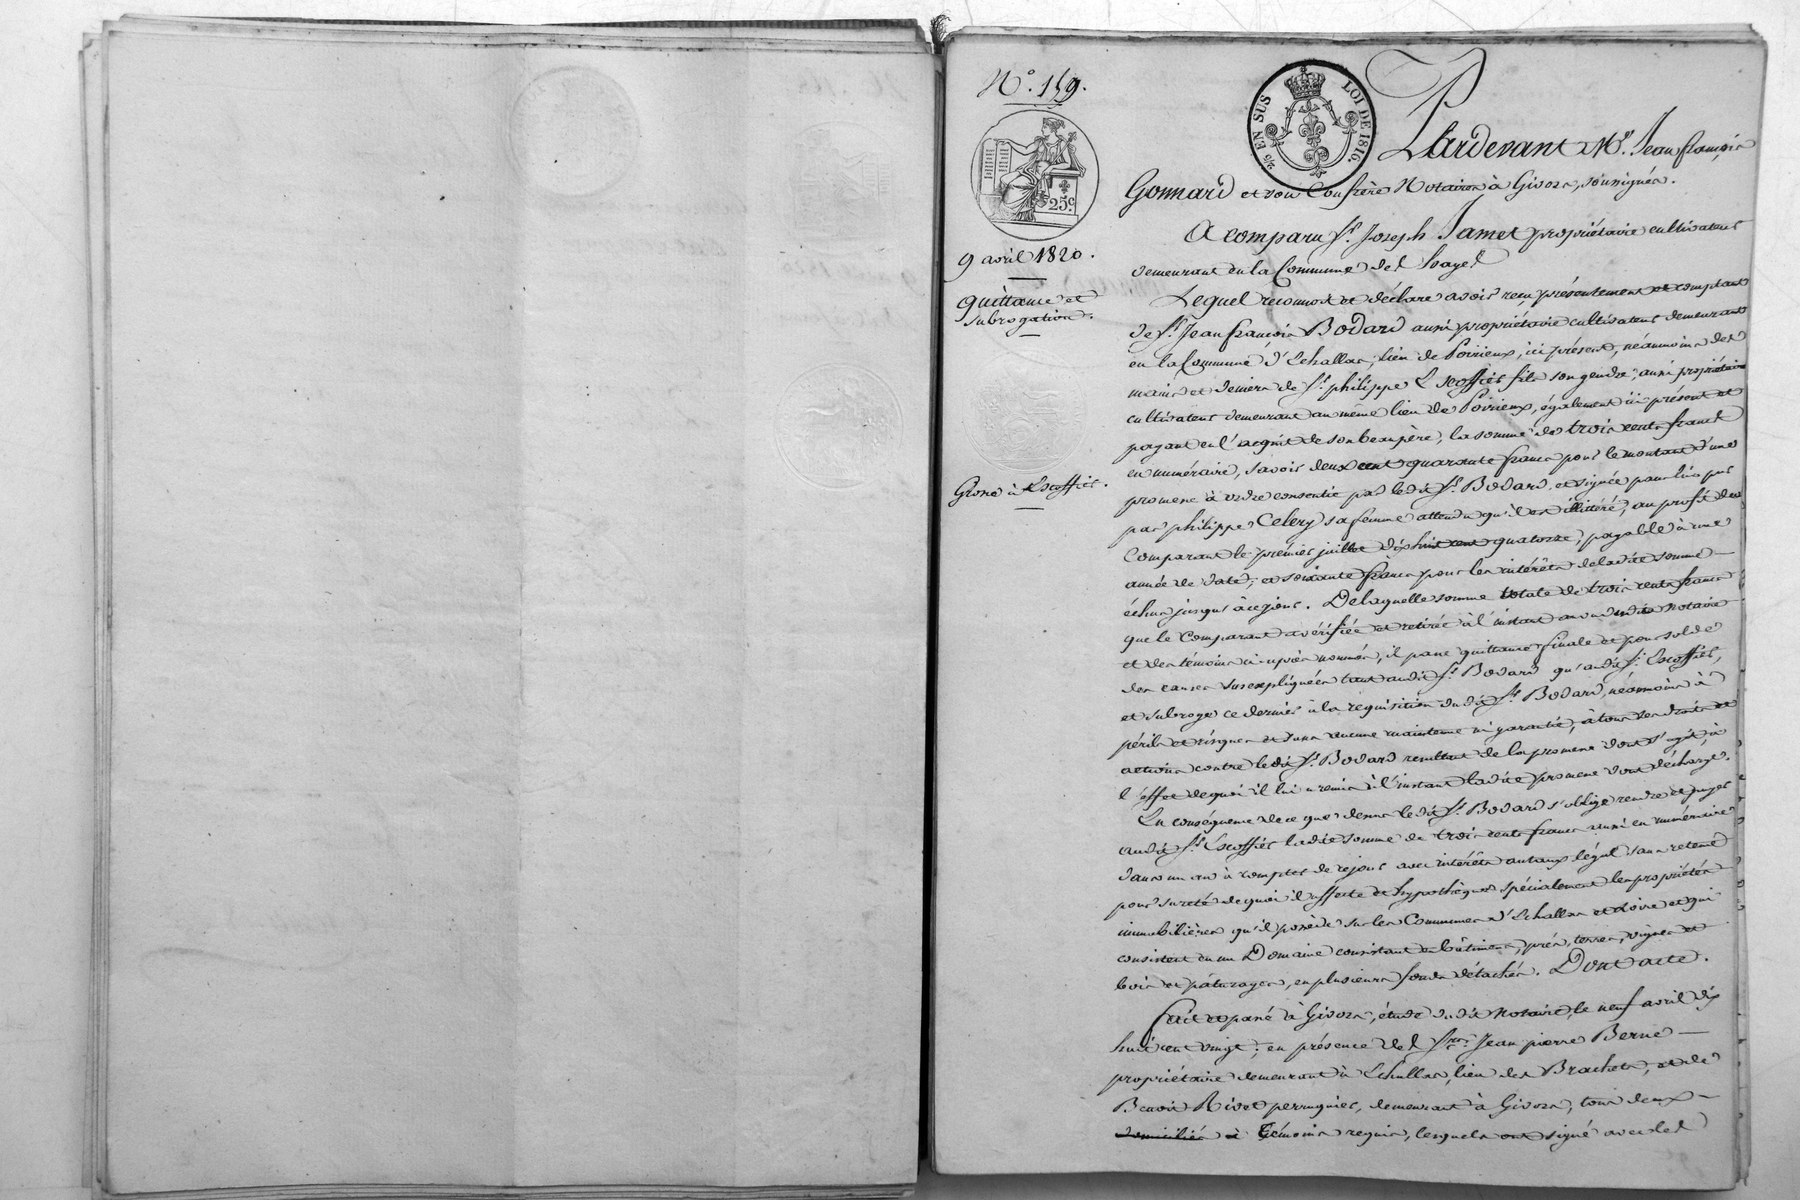 N.° 159.
EN SUS
LOI DE 1816.
25c
9 avril 1820.
quittance et
subrogation.
Grosse à Escoffier.
Pardevant Me. Jean françois
Gonnard et son Confrère Notaires à Givors, soussignés.
A comparu Sr. Joseph Jamet propriétaire cultivateur
demeurant en la Commune de
Lequel reconnoit et déclare avoir reçu présentement et comptant
de Sr. Jean françois Bodard aussi propriétaire cultivateur demeurant
en la Commune d'Echallas, lieu de Poirieux, ici présent, néanmoins des
mains et deniers de Sr. philippe Escoffier fils son gendre, aussi propriétaire
cultivateur demeurant au même lieu de Poirieux, également ici présent et
payant en l'acquit de son beaupère, la somme de trois cents francs
en numéraire, savoir deux cent quarante francs pour le montant d'une
promesse à ordre consentie par ledit Sr. Bodard et signée pour lui
par philippe Celery sa femme attendu qu'il est illitéré, au profit du
Comparant le premier juillet dix huit cent quatorze, payable à une
année de date; et soixante francs pour les intérêts de ladite somme
échus jusqu'à ce jour. De laquelle somme totale de trois cents francs
que le Comparant a vérifiée et retirée à l'instant au vu dudit Notaire
et des témoins ci-après nommés, il passe quittance finale et pour solde
des causes susexpliquées tant audit Sr. Bodard qu'audit Sr. Escoffier,
et subroge ce dernier à la requisition dudit Sr. Bodard, néanmoins à
périls et risques et sans aucune maintenue ni garantie, à tous ses droits et
actions contre ledit Sr. Bodard resultant de la promesse dont s'agit, à
l'effet de quoi il lui a remis à l'instant ladite promesse dont décharge.
En conséquence de ce que dessus ledit Sr. Bodard s'oblige rendre et payer
audit Sr. Escoffier ladite somme de trois cents francs aussi en numéraire
dans un an à compter de ce jour avec intérêts au taux légal sans retenue
pour sureté de quoi il affecte et hypothèque spécialement les propriétés
immobilières qu'il possède sur les Communes d'Echallas et Loire et qui
consistent en un Domaine consistant en bâtimens, prés, terres, vignes et
bois et pâturages, en plusieurs fonds détachés. Dont acte.
fait et passé à Givors, étude dudit Notaire, le neuf avril dix
huit cent vingt; en présence de Jean pierre Berne
propriétaire demeurant à Echallas, lieu des Brachets, et de
Benoit Rivet perruquier, demeurant à Givors, tous deux
domiciliés à témoins requis, lesquels ont signé avec les